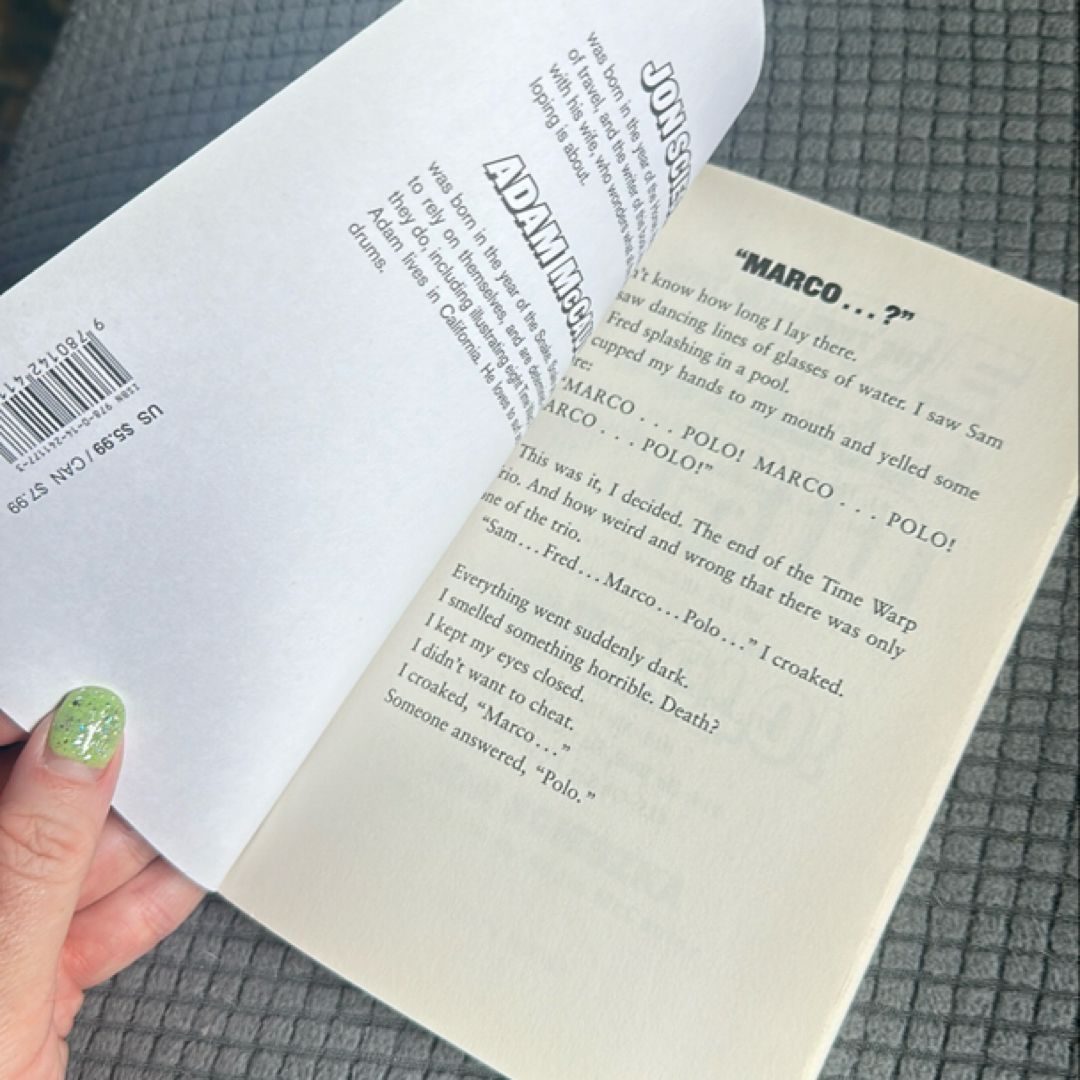 JON SCIE
was born in the year of the
of travel, and the writer of this
with his wife, who wonders
loping is about.
ADAM McCAU
was born in the year of the Snake.
to rely on themselves, and are
they do, including illustrating eight Time
Adam lives in California. He loves to
drums.
9 780142 411
ISBN 978-0-14-241177-3
US $5.99 / CAN $7.99
“MARCO . . . ?”
n’t know how long I lay there.
saw dancing lines of glasses of water. I saw Sam
Fred splashing in a pool.
cupped my hands to my mouth and yelled some
re:
“MARCO . . . POLO! MARCO . . . POLO!
ARCO . . . POLO!”
This was it, I decided. The end of the Time Warp
rio. And how weird and wrong that there was only
ne of the trio.
“Sam . . . Fred . . . Marco . . . Polo . . .” I croaked.
Everything went suddenly dark.
I smelled something horrible. Death?
I kept my eyes closed.
I didn’t want to cheat.
I croaked, “Marco . . .”
Someone answered, “Polo.”